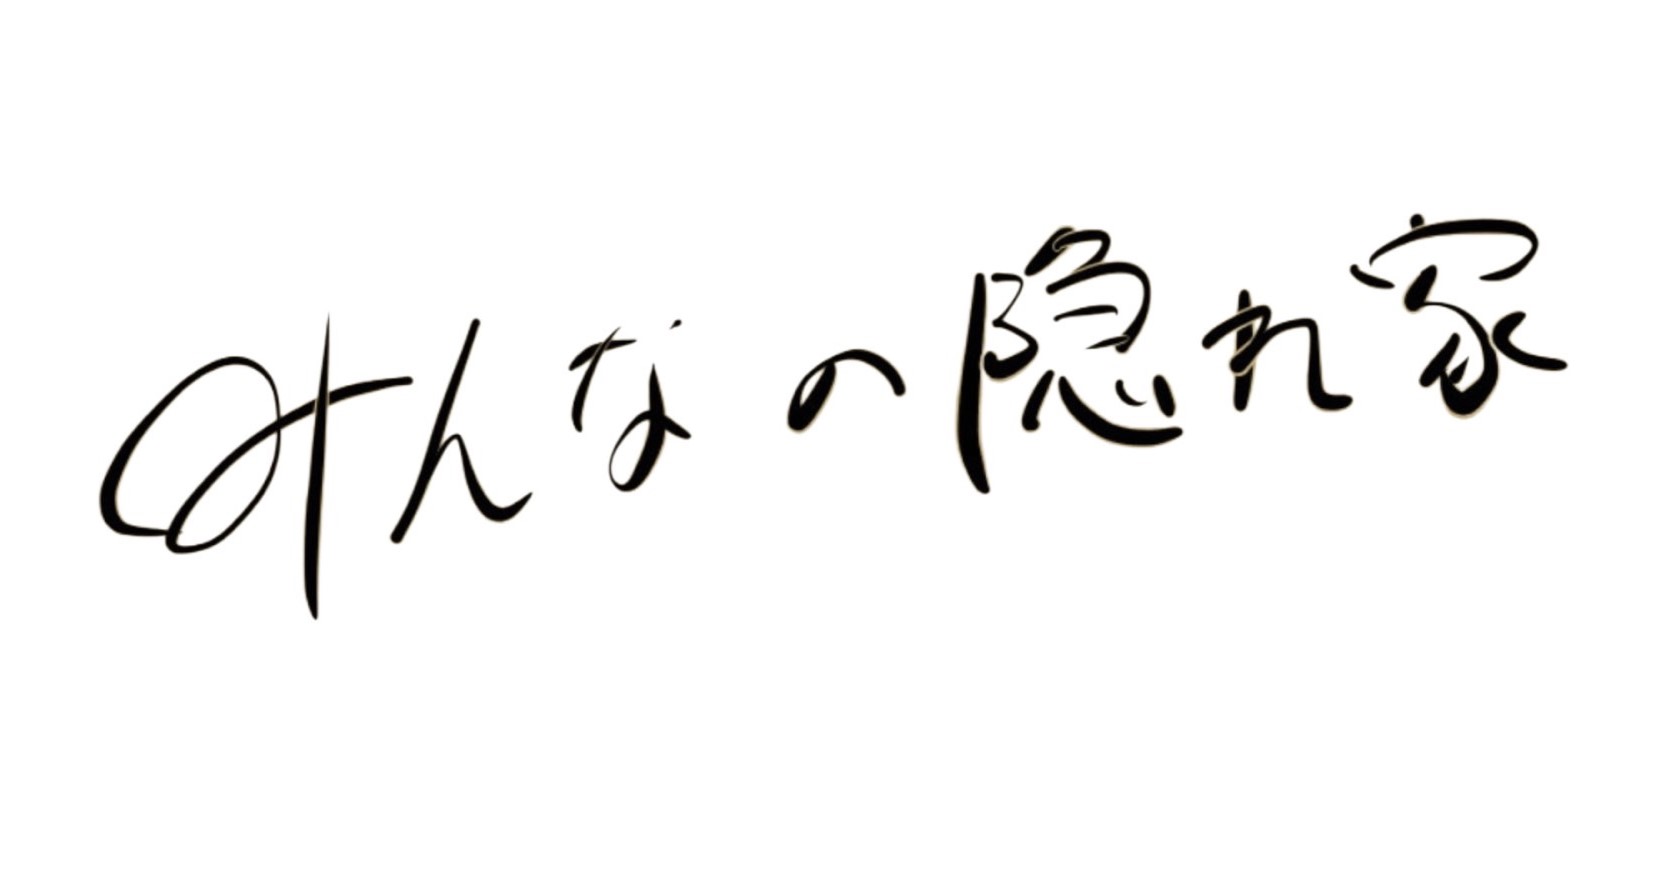 みんなの隠れ家